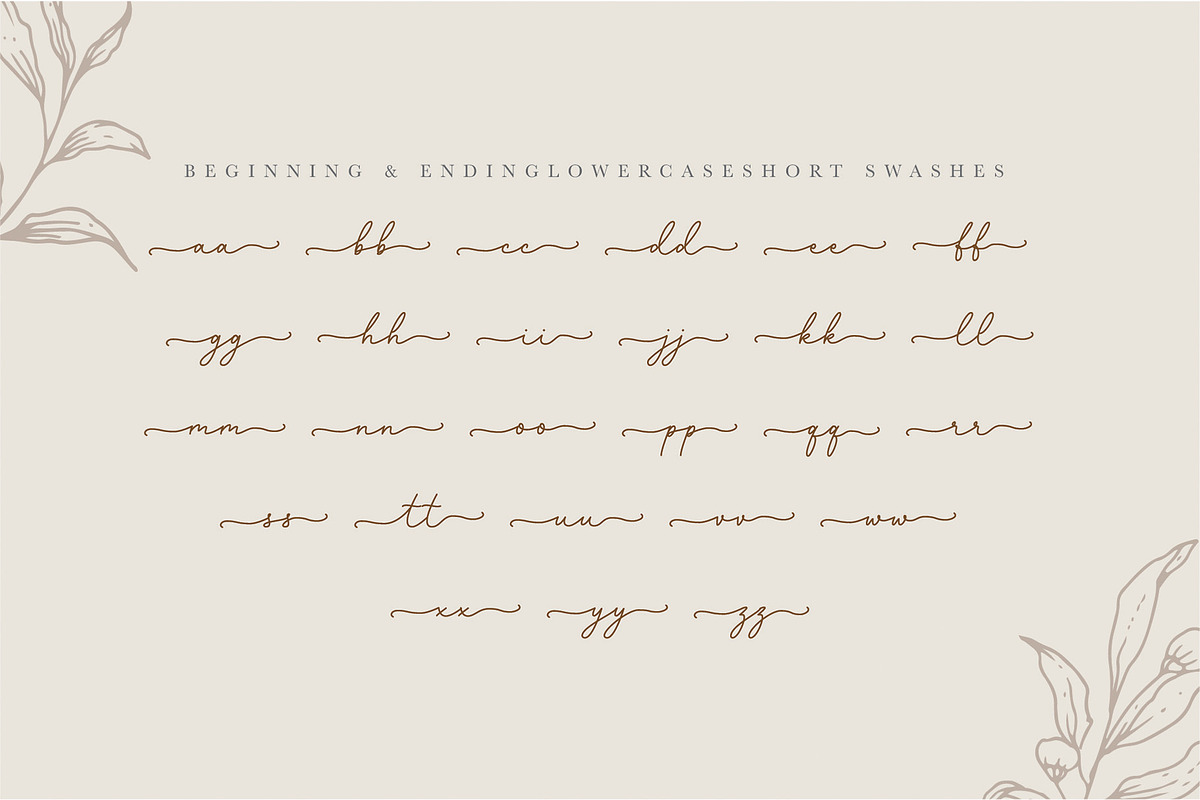 BEGINNING & ENDINGLOWERCASESHORT SWASHES
aa bb cc dd ee ff
gg hh ii jj kk ll
mm nn oo pp qq rr
ss tt uu vv ww
xx yy zz